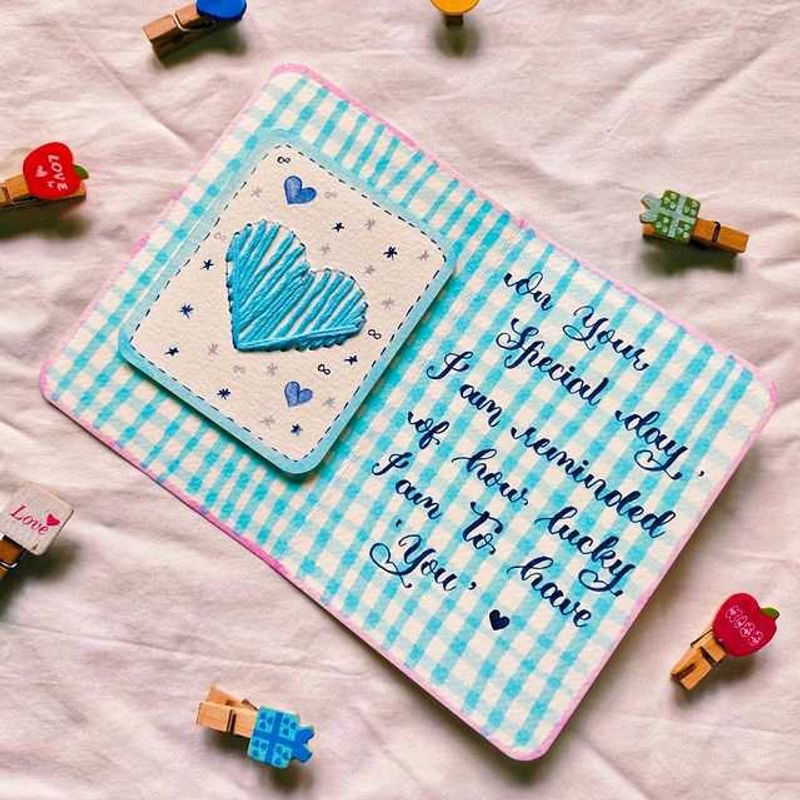 On Your
Special day,
I am reminded
of how lucky
I am To have
'You' ♥
LOVE
Love